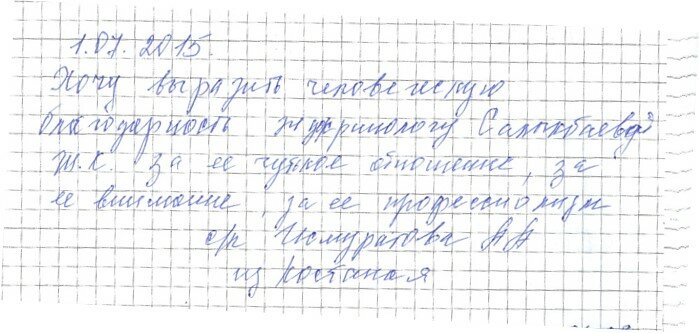 1.07. 2015.
Хочу выразить человеческую
благодарность эндокринологу Салыкбаевой
Ж.К. за ее чуткое отношение, за
ее внимание, за ее профессионизм
с/к А А
из Костаная